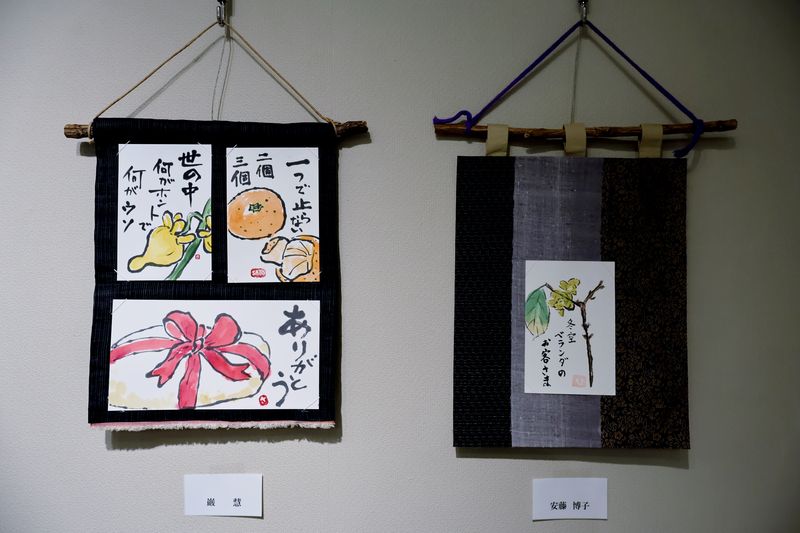 世の中
何がホントで
何がウソ
一つで止らない
二個
三個
SATO
ありがとう
巌 慧
冬空
ベランダの
お客さま
安藤 博子